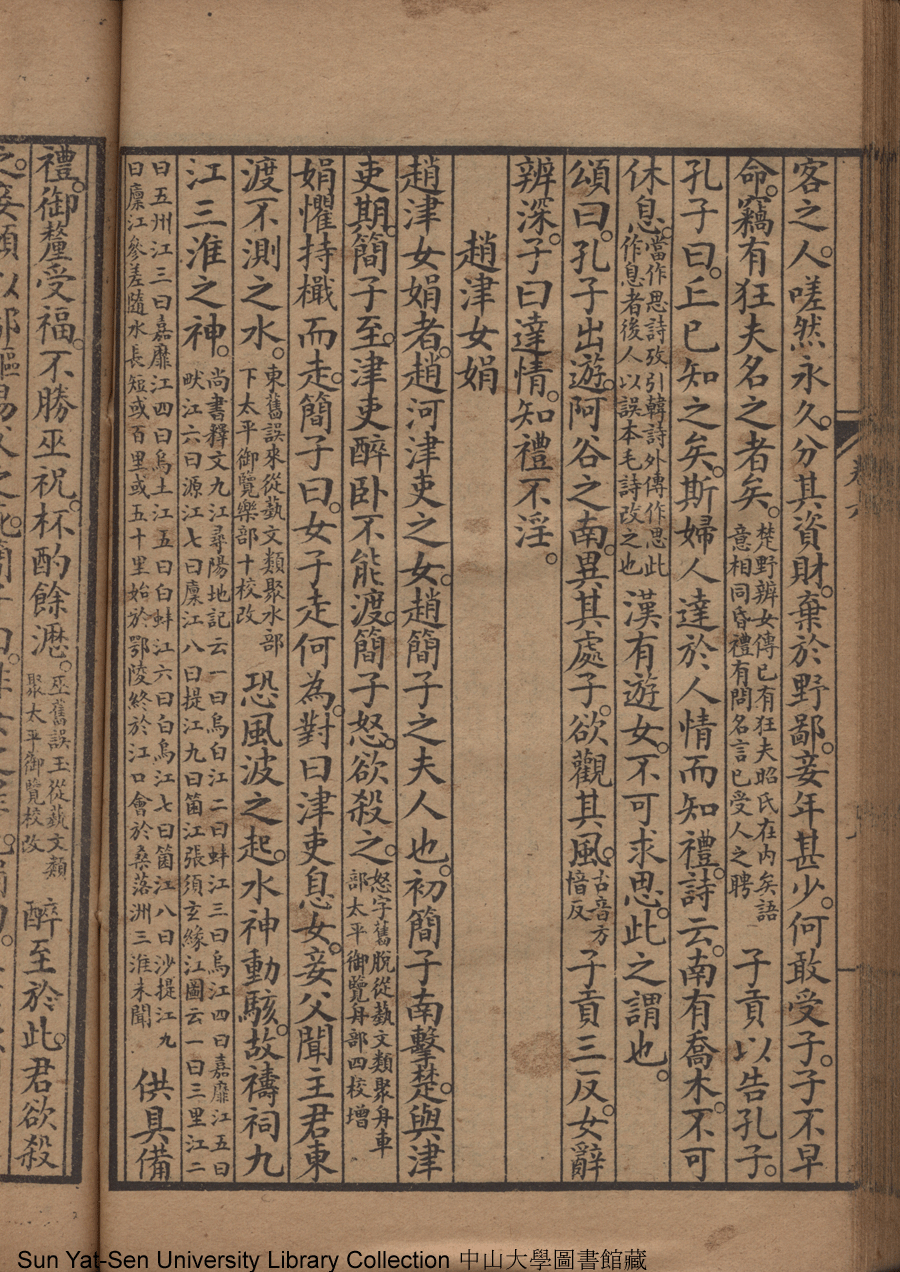 客之人。嗟然永久。分其資財。棄於野鄙。妾年甚少。何敢受子。子不早
命。竊有狂夫名之者矣。楚野辨女傳已有狂夫昭氏在內矣語意相同昏禮有問名言已受人之聘子貢以告孔子。
孔子曰。丘已知之矣。斯婦人達於人情而知禮。詩云。南有喬木。不可
休息。當作思詩攷引韓詩外傳作思此作息者後人以誤本毛詩改之也漢有遊女。不可求思。此之謂也。
頌曰。孔子出遊。阿谷之南。異其處子。欲觀其風。古音方愔反子貢三反。女辭
辨深。子曰達情。知禮不淫。
趙津女娟
趙津女娟者。趙河津吏之女。趙簡子之夫人也。初簡子南擊楚。與津
吏期。簡子至。津吏醉卧不能渡。簡子怒。欲殺之。怒字舊脫從藝文類聚舟車部太平御覽舟部四校增
娟懼持檝而走。簡子曰。女子走何為。對曰津吏息女。妾父聞主君東
渡不測之水。東舊誤來從藝文類聚水部下太平御覽樂部十校改恐風波之起。水神動駭。故禱祠九
江三淮之神。尚書釋文九江尋陽地記云一曰烏白江二曰蚌江三曰烏江四曰嘉靡江五曰畎江六曰源江七曰廩江八曰提江九曰箘江張須玄緣江圖云一曰三里江二
曰五州江三曰嘉靡江四曰烏土江五曰白蚌江六曰白烏江七曰箘江八曰沙提江九曰廩江參差隨水長短或百里或五十里始於鄂陵終於江口會於桑落洲三淮未聞供具備
禮。御釐受福。不勝巫祝。杯酌餘瀝。巫舊誤王從藝文類聚太平御覽校改醉至於此。君欲殺
Sun Yat-Sen University Library Collection 中山大學圖書館藏